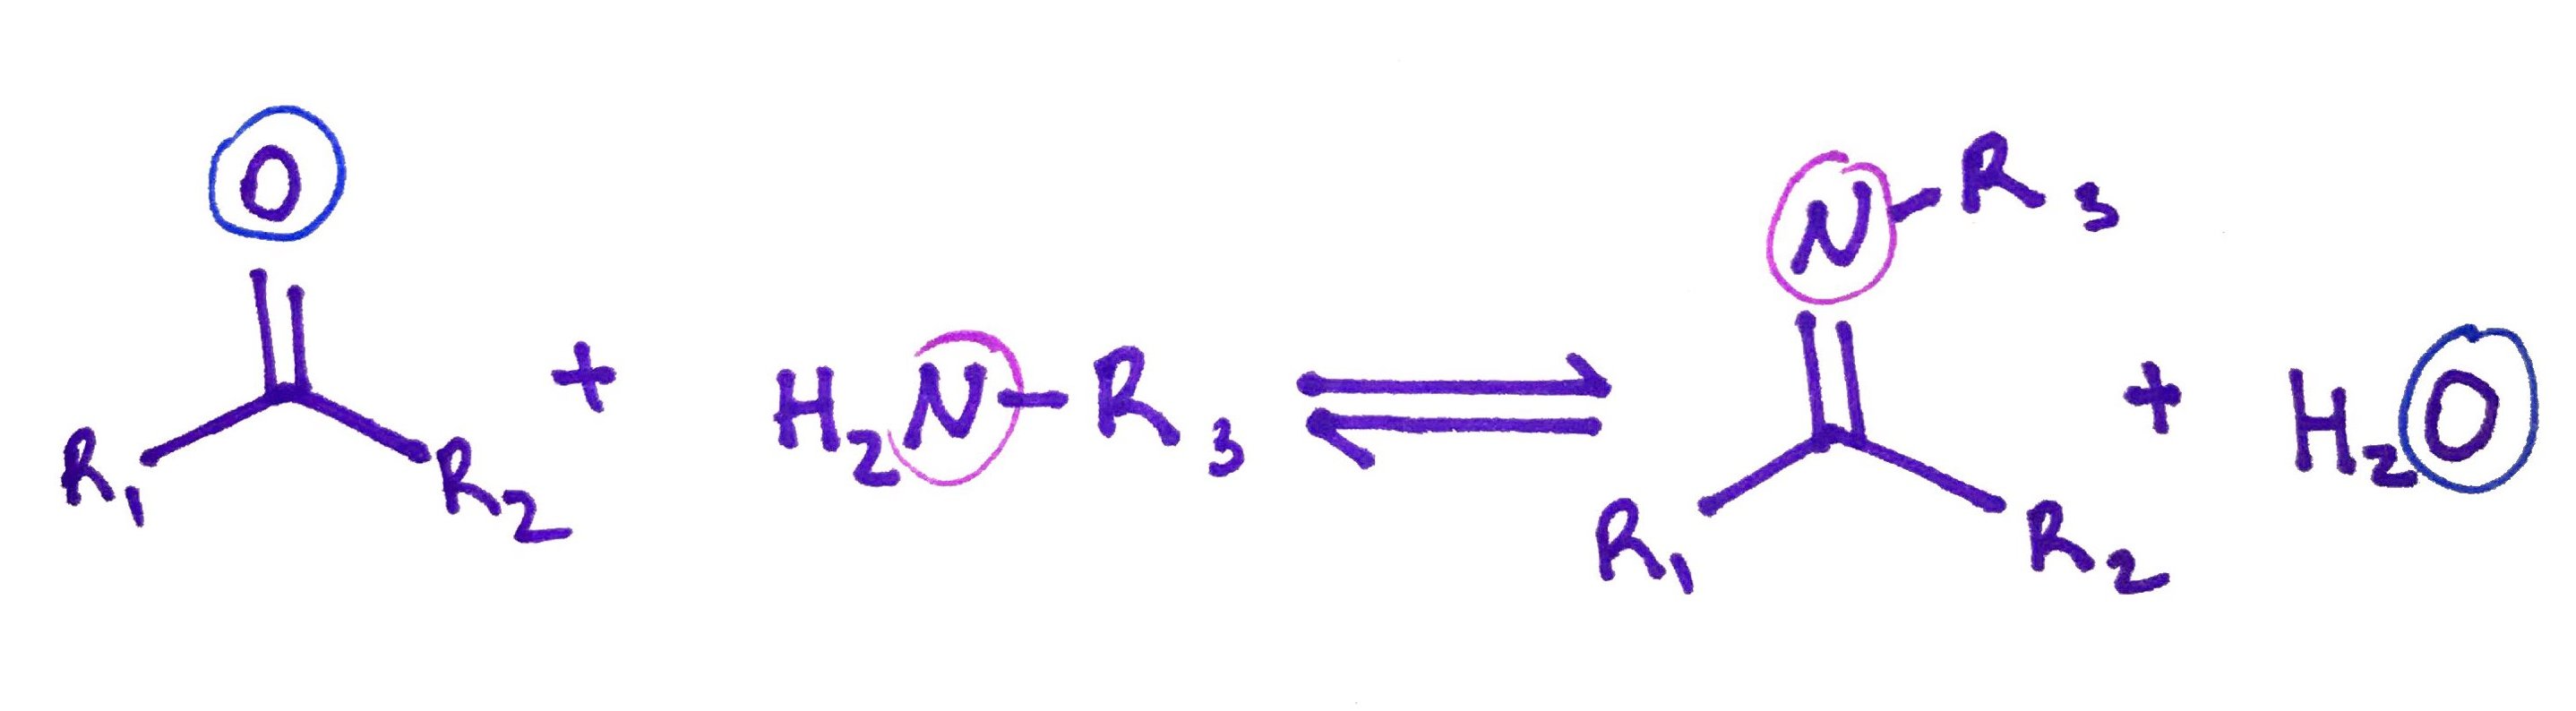 O
R₁ R₂
+
H₂N-R₃
N-R₃
R₁ R₂
+
H₂O